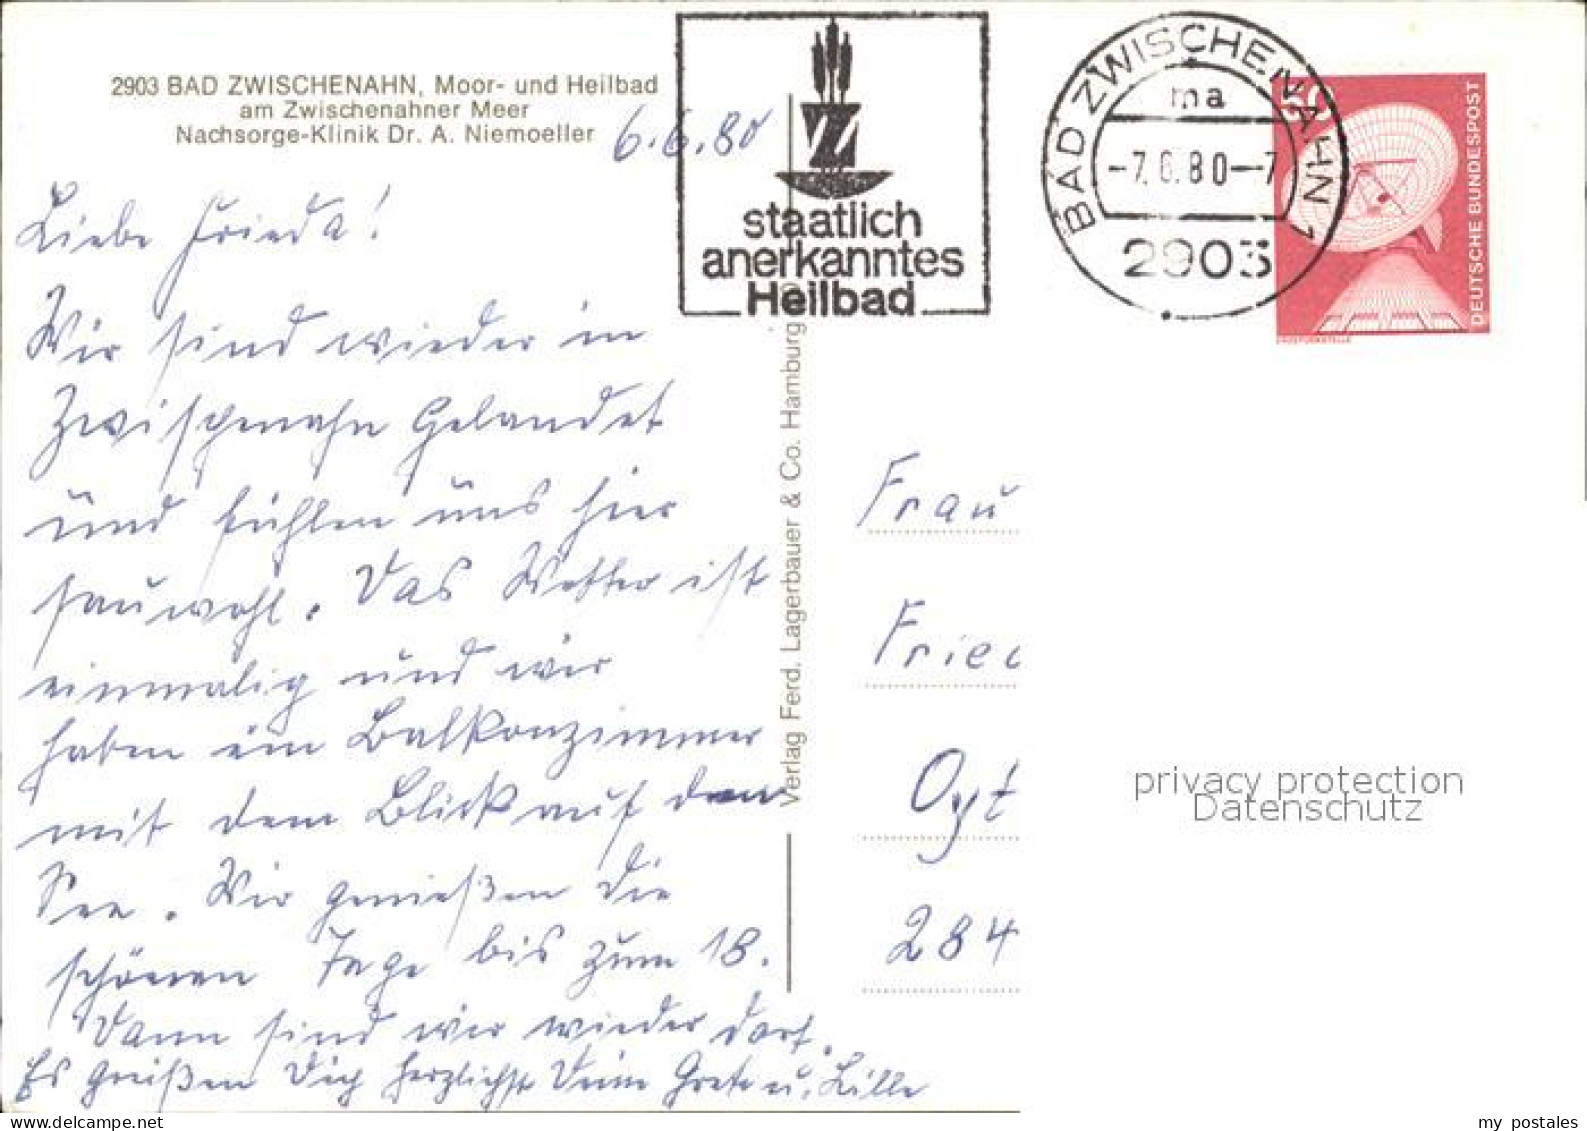 2903 BAD ZWISCHENAHN, Moor- und Heilbad
am Zwischenahner Meer
Nachsorge-Klinik Dr. A. Niemoeller
6.6.80
Liebe Frieda!
Wir sind wieder in
Zwischenahn Gelandet
und fühlen uns hier
sauwohl. Das Wetter ist
einmalig und wir
haben ein Balkonzimmer
mit dem Blick auf den
See. Wir genießen die
schönen Tage bis zum 18.
Dann sind wir wieder dort.
Es grüßen Dich herzlichst Deine Grete u. Lille
Verlag Ferd. Lagerbauer & Co. Hamburg
staatlich
anerkanntes
Heilbad
BAD ZWISCHENAHN 1
ma
-7.6.80-7
2903
50
DEUTSCHE BUNDESPOST
ERDEFUNKSTELLE
Frau
Fried
Oyt
284
privacy protection
Datenschutz
my postales